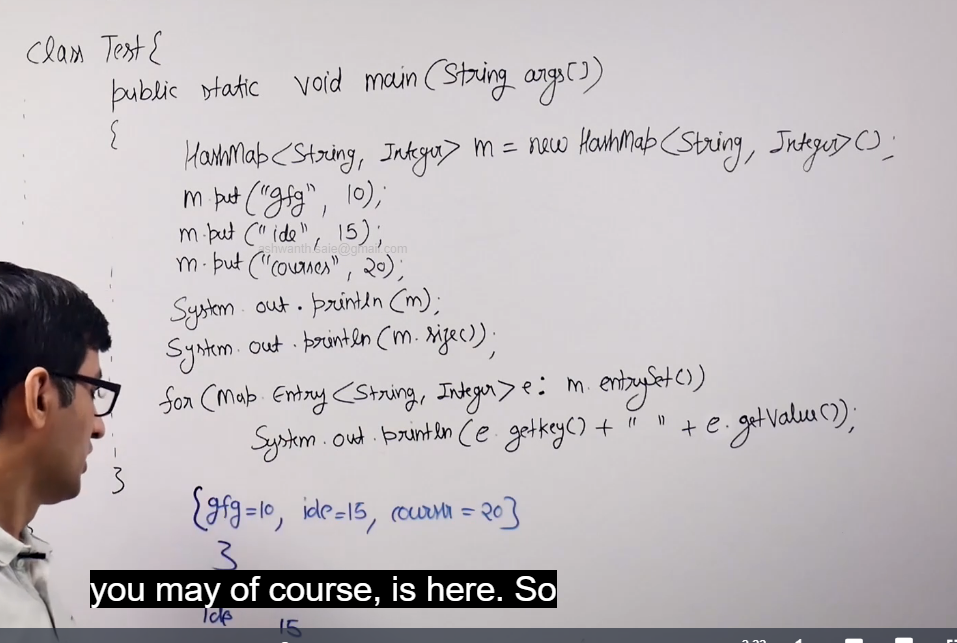 class Test{
public static void main(String args[])
{
HashMap<String, Integer> m = new HashMap<String, Integer>();
m.put("gfg", 10);
m.put("ide", 15);
ashwanth.saie@gmail.com
m.put("courses", 20);
System.out.println(m);
System.out.println(m.size());
for(Map.Entry<String, Integer> e: m.entrySet())
System.out.println(e.getkey() + " " + e.getValue());
}
{gfg=10, ide=15, courses=20}
3
you may of course, is here. So
ide 15